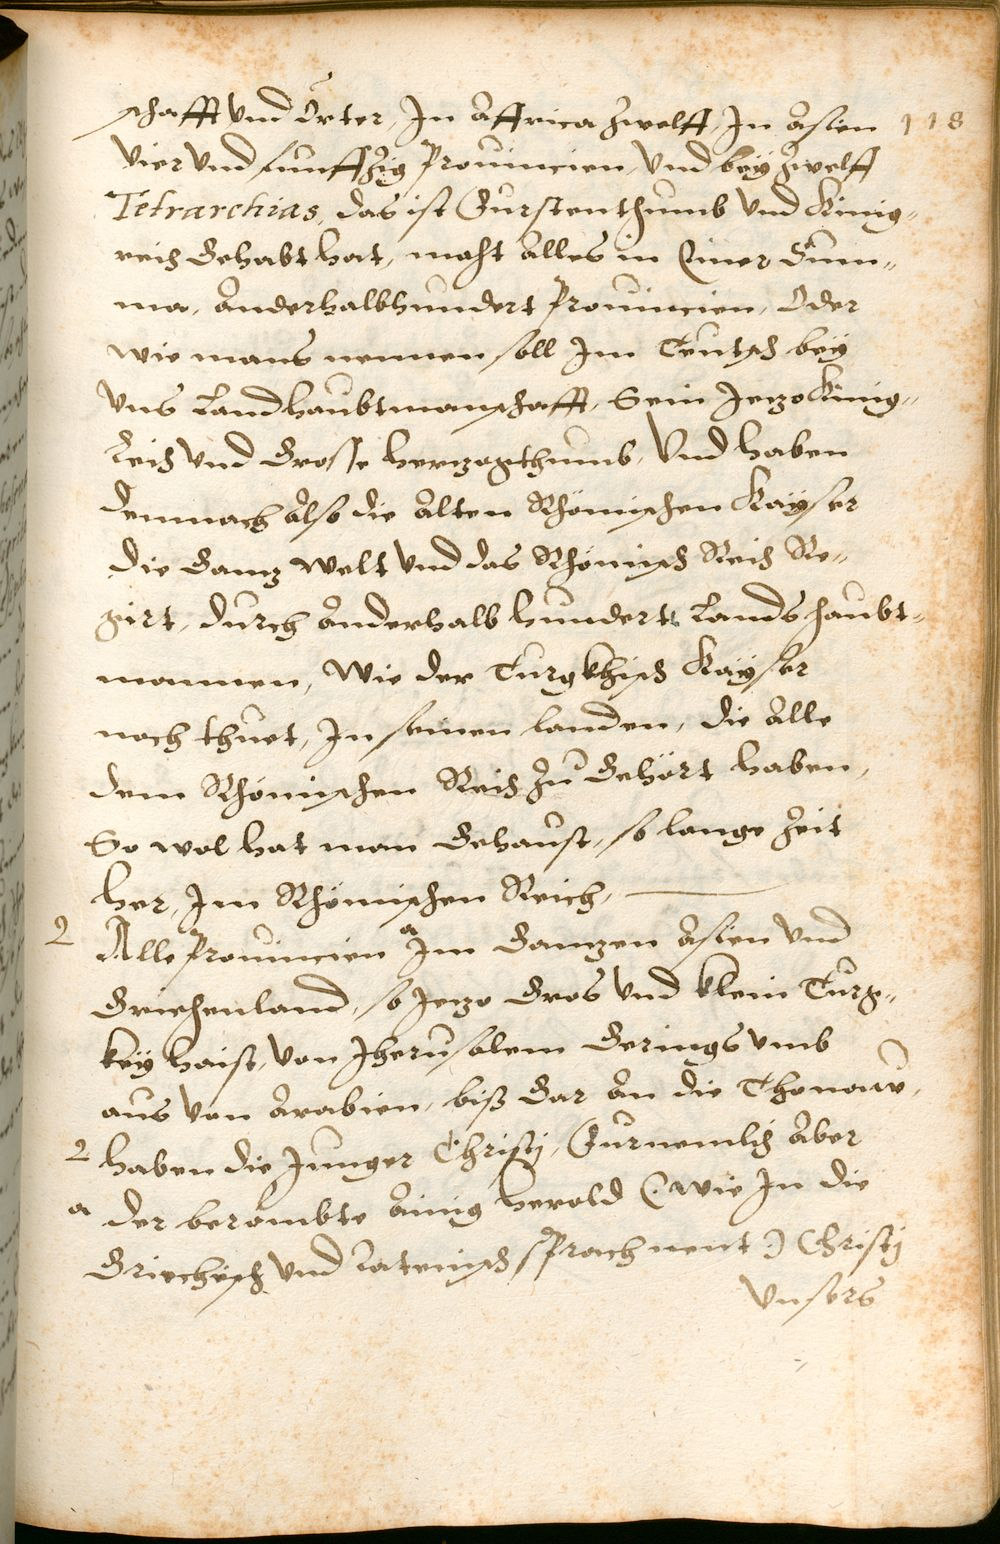 schafft vnd Örter, In Affrica zwelff, In Asien 118
vier vnd funffzig Prouincien, vnd bey zwelff
Tetrarchias, das ist Furstenthumb vnd Kinig-
reich Gehabt hat, macht Alles in Einer Sum-
ma, Anderhalbhundert Prouincien, Oder
wie mans nennen soll Im Teutsch bey
vns Landhaubtmanschafft, Sein Jezo Kinig-
Reich vnd Grosse herzogthumb, Vnd haben
demnach Also die Alten Rhömischen Kayser
die Ganz Welt vnd das Rhömisch Reich Re-
girt, durch Anderhalb hundert Landshaubt-
mannen, Wie der Turgkhisch Kayser
noch thuet, In seinen landen, die Alle
dem Rhömischen Reich zu Gehört haben,
So wol hat man Gehaust, so lange Zeit
her, Im Rhömischen Reich,
2 Alle Prouincien a Im Ganzen Asien vnd
Griechenland, so Jezo Gros vnd klein Turg-
key haist, von Jherusalem Geringsvmb
aus von Arabien, biß Gar An die Thonaw,
2 haben die Junger Christj, Furnemlich Aber
a der berambte Ainig herold (: wie In die
Griechisch vnd Lateinisch Sprach nent :) Christj
Vnsers